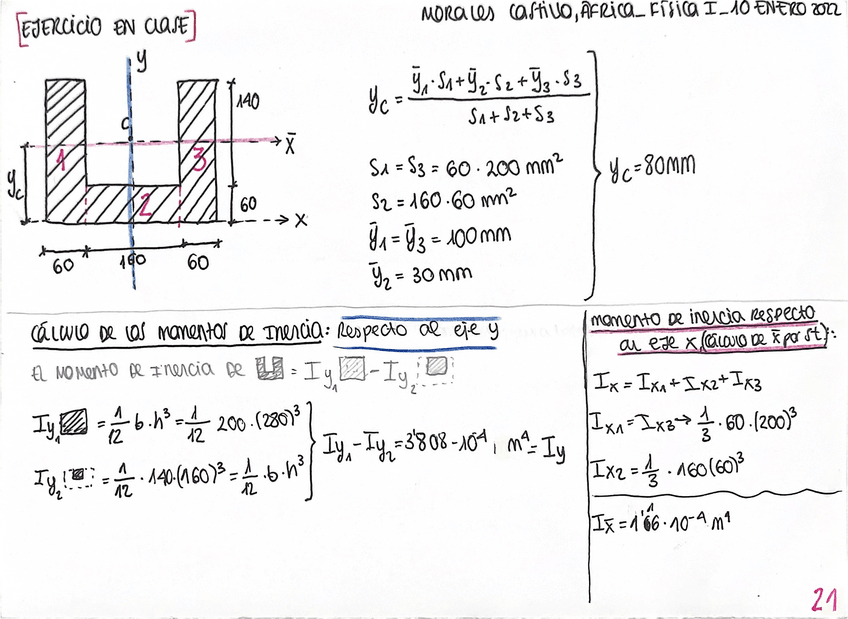 MORALES CASTILLO, ÁFRICA_FÍSICA I_10 ENERO 2022
[EJERCICIO EN CLASE]
y
140
C
x̄
1
3
yc
2
60
x
60
160
60
yc = (ȳ1·S1+ȳ2·S2+ȳ3·S3) / (S1+S2+S3)
S1 = S3 = 60 · 200 mm²
S2 = 160·60 mm²
ȳ1 = ȳ3 = 100mm
ȳ2 = 30 mm
yc = 80mm
CÁLCULO DE LOS MOMENTOS DE INERCIA: Respecto al eje y
EL MOMENTO DE INERCIA DE = Iy1 - Iy2
Iy1 = 1/12 b·h³ = 1/12 200·(280)³
Iy2 = 1/12 · 140·(160)³ = 1/12 · b·h³
Iy1 - Iy2 = 3'808·10⁻⁴, m⁴ = Iy
momento de inercia respecto
al eje x (cálculo de x̄ por St):
Ix = Ix1 + Ix2 + Ix3
Ix1 = Ix3 → 1/3 · 60·(200)³
Ix2 = 1/3 · 160(60)³
Ix̄ = 1'66·10⁻⁴ m⁴
21